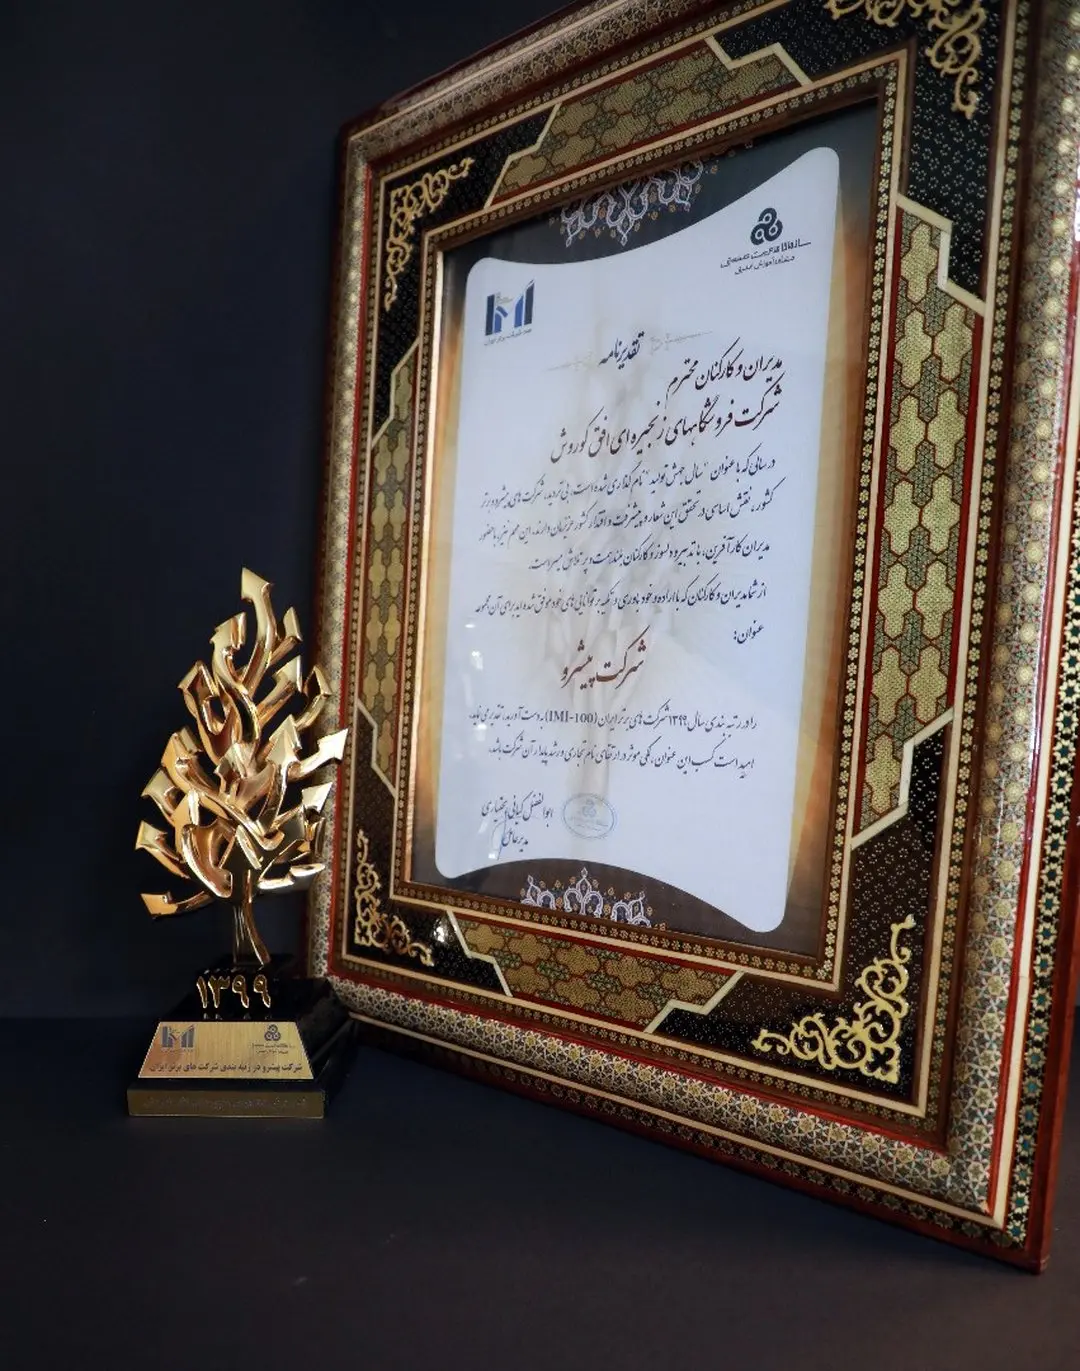 سازمان مدیریت صنعتی
تقدیرنامه
مدیران و کارکنان محترم
شرکت فروشگاههای زنجیره ای افق کوروش
در سالی که با عنوان "سال جهش تولید" نام گذاری شده است، بی تردید، شرکت های پیشرو و برتر
کشور، نقش اساسی در تحقق این شعار و پیشرفت و اقتدار کشور عزیزمان دارند، این مهم نیز، با حضور
مدیران کارآفرین، با تدبیر و دلسوز و کارکنان بلند همت و پر تلاش میسر است.
از شما مدیران و کارکنان که با اراده و خود باوری و تکیه بر توانایی های خود موفق شده اید برای آن مجموعه
عنوان:
شرکت پیشرو
را در رتبه بندی سال ۱۳۹۹ شرکت های برتر ایران (IMI-100) به دست آورید، تقدیر می نماید.
امید است کسب این عنوان، گامی موثر در ارتقای نام تجاری و رشد پایدار آن شرکت باشد.
ابوالفضل کیانی بختیاری
مدیرعامل
۱۳۹۹
شرکت پیشرو در رتبه بندی شرکت های برتر ایران